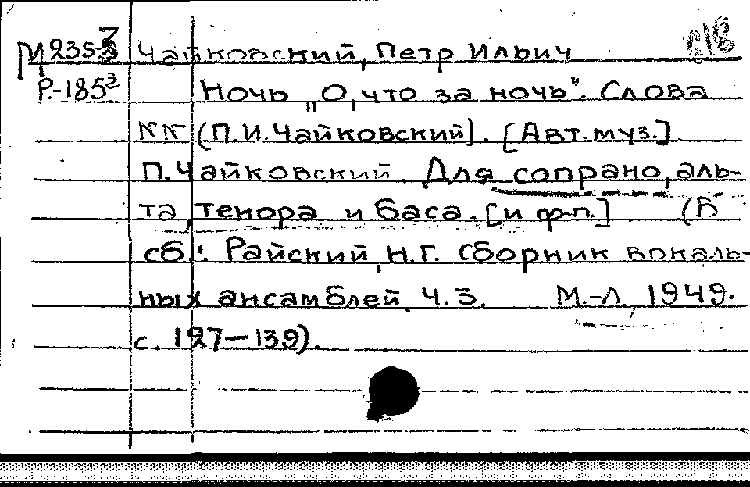 Чайковский, Петр Ильич
Р-185³ Ночь „О, что за ночь". Слова
NN (П.И. Чайковский). [Авт. муз.]
П. Чайковский. Для сопрано, аль-
та, тенора и баса. [и ф-п.] (В
сб.: Райский, Н.Г. Сборник вокаль-
ных ансамблей, Ч. 3. М.-Л., 1949.
с. 127–139).